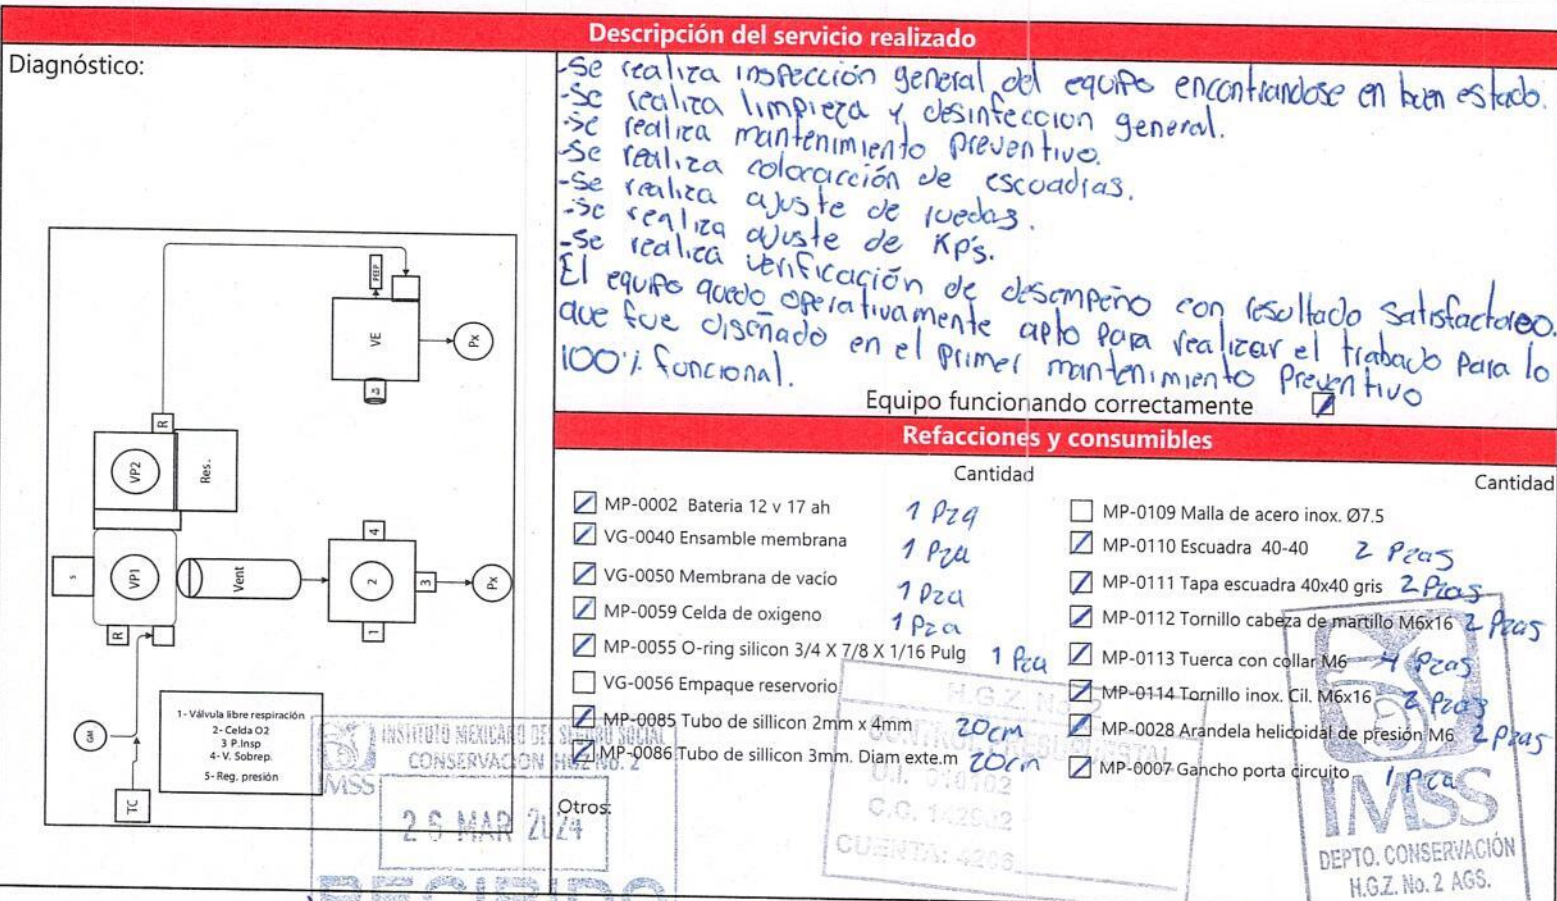 Descripción del servicio realizado
Diagnóstico:
-Se realiza inspección general del equipo encontrandose en buen estado.
-Se realiza limpieza y desinfeccion general.
-Se realiza mantenimiento preventivo.
-Se realiza colocacción de escuadras.
-Se realiza ajuste de ruedas.
-Se realiza ajuste de Kp's.
-Se realiza verificación de desempeño con resultado satisfactoreo.
El equipo quedo operativamente apto para realizar el trabajo para lo
que fue diseñado en el primer mantenimiento preventivo
100% funcional.
Equipo funcionando correctamente
PEEP
VE
Px
R
VP2
Res.
s
VP1
Vent
4
2
3
Px
1
R
GM
TC
1- Válvula libre respiración
2- Celda O2
3 P.Insp
4- V. Sobrep.
5- Reg. presión
Refacciones y consumibles
Cantidad
MP-0002 Bateria 12 v 17 ah 1 Pza
VG-0040 Ensamble membrana 1 Pza
VG-0050 Membrana de vacío 1 Pza
MP-0059 Celda de oxigeno 1 Pza
MP-0055 O-ring silicon 3/4 X 7/8 X 1/16 Pulg 1 Pza
VG-0056 Empaque reservorio
MP-0085 Tubo de sillicon 2mm x 4mm 20cm
MP-0086 Tubo de sillicon 3mm. Diam exte.m 20cm
Otros:
Cantidad
MP-0109 Malla de acero inox. Ø7.5
MP-0110 Escuadra 40-40 2 Pzas
MP-0111 Tapa escuadra 40x40 gris 2 Pzas
MP-0112 Tornillo cabeza de martillo M6x16 2 Pzas
MP-0113 Tuerca con collar M6 4 Pzas
MP-0114 Tornillo inox. Cil. M6x16 2 Pzas
MP-0028 Arandela helicoidal de presión M6 2 Pzas
MP-0007 Gancho porta circuito 1 Pza
INSTITUTO MEXICANO DEL SEGURO SOCIAL
CONSERVACION HGZ No. 2
IMSS
26 MAR 2024
RECIBIDO
H.G.Z. No. 2
CONTROL PRESUPUESTAL
U.I.
C.G.
CUENTA:
IMSS
DEPTO. CONSERVACIÓN
H.G.Z. No. 2 AGS.